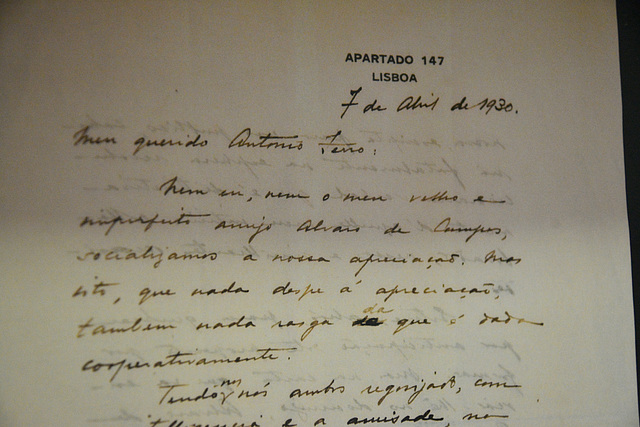 APARTADO 147
LISBOA
7 de Abril de 1930.
Meu querido Antonio Ferro:
Nem eu, nem o meu velho e
imperfeito amigo Alvaro de Campos,
socializamos a nossa apreciação. Mas
isto, que nada despe á apreciação,
tambem nada rasga da que é dada
cooperativamente.
Tendo-nos nós ambos regosijado, com
a intelligencia e a amisade, no